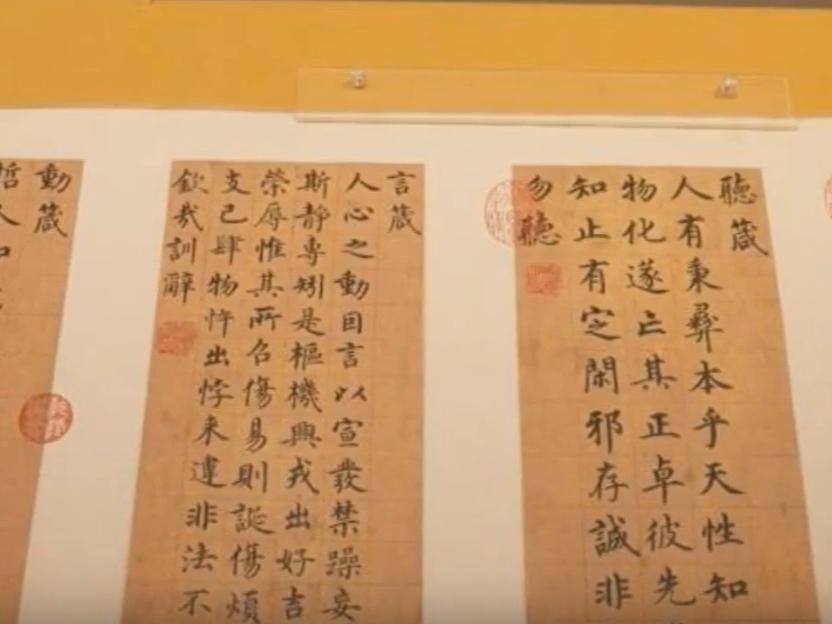 聽箴
人有秉彝本乎天性知
物化遂亡其正卓彼先
知止有定閑邪存誠非
勿聽
言箴
人心之動因言以宣發禁躁妄
斯靜專矧是樞機興戎出好吉
榮辱惟其所召傷易則誕傷煩
支己肆物忤出悖来違非法不
欽哉訓辭
動箴
哲人知